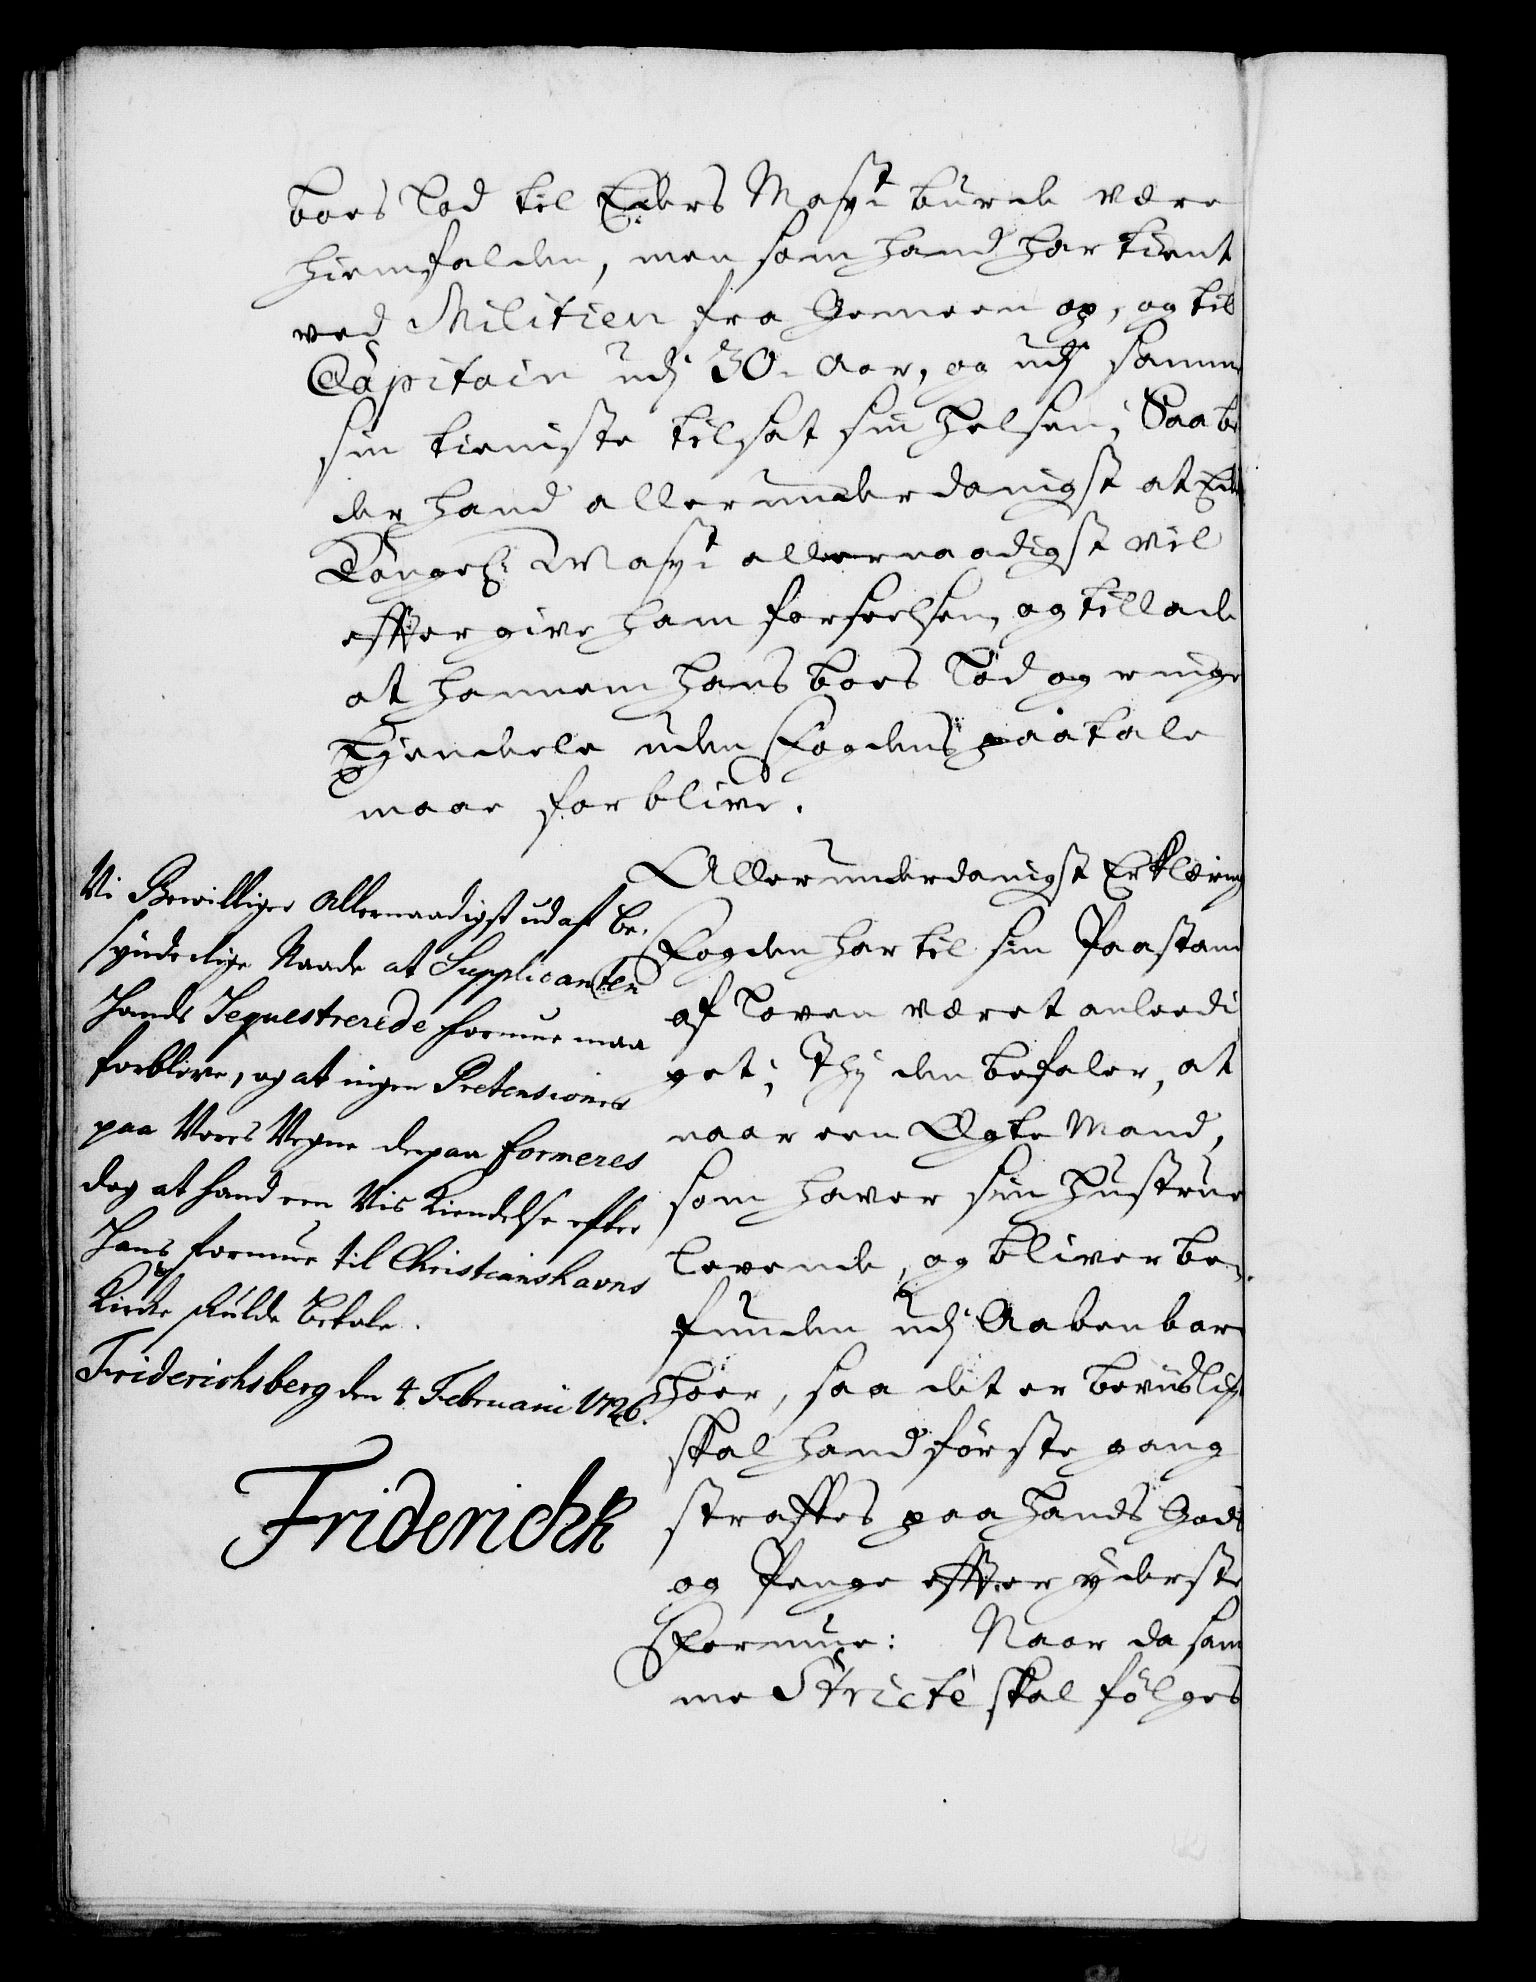 boes Lod til Eders Mayst burde være
hiemfalden, men som hand har tient
ved Militien fra Gemeen op, og til
Capitain udj 30. Aar, og udj samme
sin tieniste tilsat sin Helsen; Saa be
der hand allerunderdanigst at Eders
Kongel: Mayst allernaadigst vil
efftergive ham forseelsen, og tillade
at hannem hans boes Lod og ringe
Ejendele uden Fogdens paatale
maae forblive.
Allerunderdanigst Erklæring
Fogden har til sin Paastand
af Loven været anleedi
get; Thj den befaler, at
naar een Ægte Mand,
som haver sin Hustrue
levende, og bliver be-
funden udj Aabenbar
Hoer, saa det er beviislig
skal hand første gang
straffes paa hands Gods
og Penge effter yderste
Formue: Naar da sam
me Stricte skal følges
Vi Bewilliger Allernaadigst ud aft be-
synderlige Naade at Supplicanten
Hands Sequestrerede Formue maa
forblive, og at ingen Pretensioner
paa Vores Vegne derpaa formeres
dog at hand een Vis Kiendelse efter
Hans formue til Christianshavns
Kirke skulde betale.
Friderichsberg den 4 Februarii 1726.
Friderich R